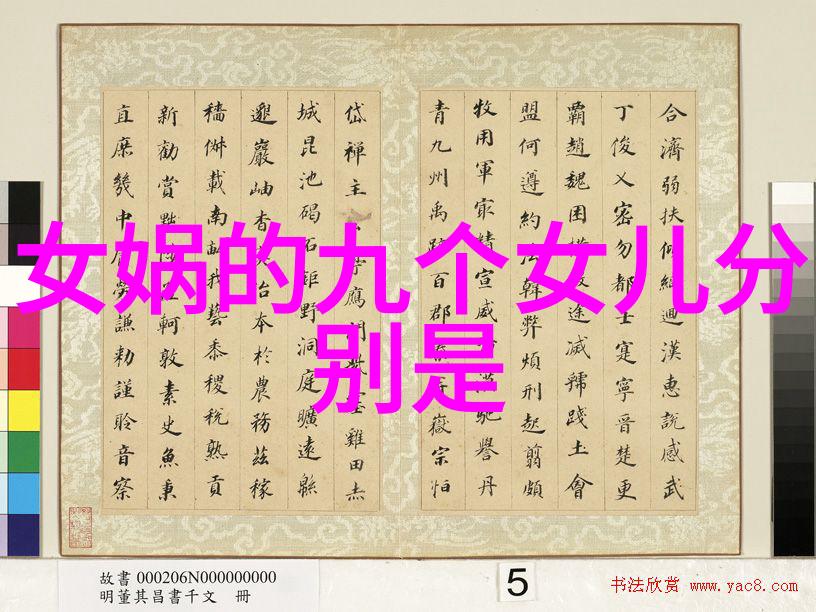 女娲的九个女儿分
别是
合濟弱扶傾綺迴漢惠說感武
丁俊乂密勿多士寔寧晉楚更
霸趙魏困橫假途滅虢踐土會
盟何遵約法韓弊煩刑起翦頗
牧用軍最精宣威漠馳譽丹
青九州禹跡百郡嶽宗恒
岱禪主亭鴈門塞雞田赤
城昆池碣石鉅野洞庭曠遠緜
邈巖岫杳冥治本於農務茲稼
穡俶載南畝我藝黍稷稅熟貢
新勸賞黜陟孟軻敦素史魚秉
直庶幾中庸勞謙勑謹聆音察
故書 000206N000000000
明董其昌書千文 冊
5
书法欣赏 www.yac8.com